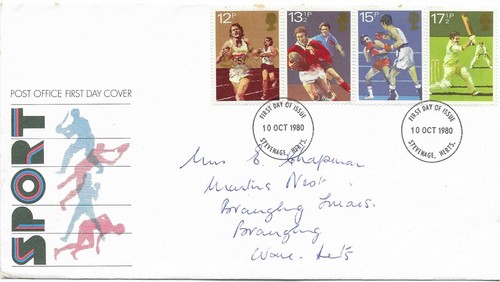 12P
13½P
15P
17½P
POST OFFICE FIRST DAY COVER
SPORT
FIRST DAY OF ISSUE
10 OCT 1980
STEVENAGE, HERTS.
FIRST DAY OF ISSUE
10 OCT 1980
STEVENAGE, HERTS.
Mrs E. Chapman
Martins Nest
Braughing
Braughing
Ware. Herts